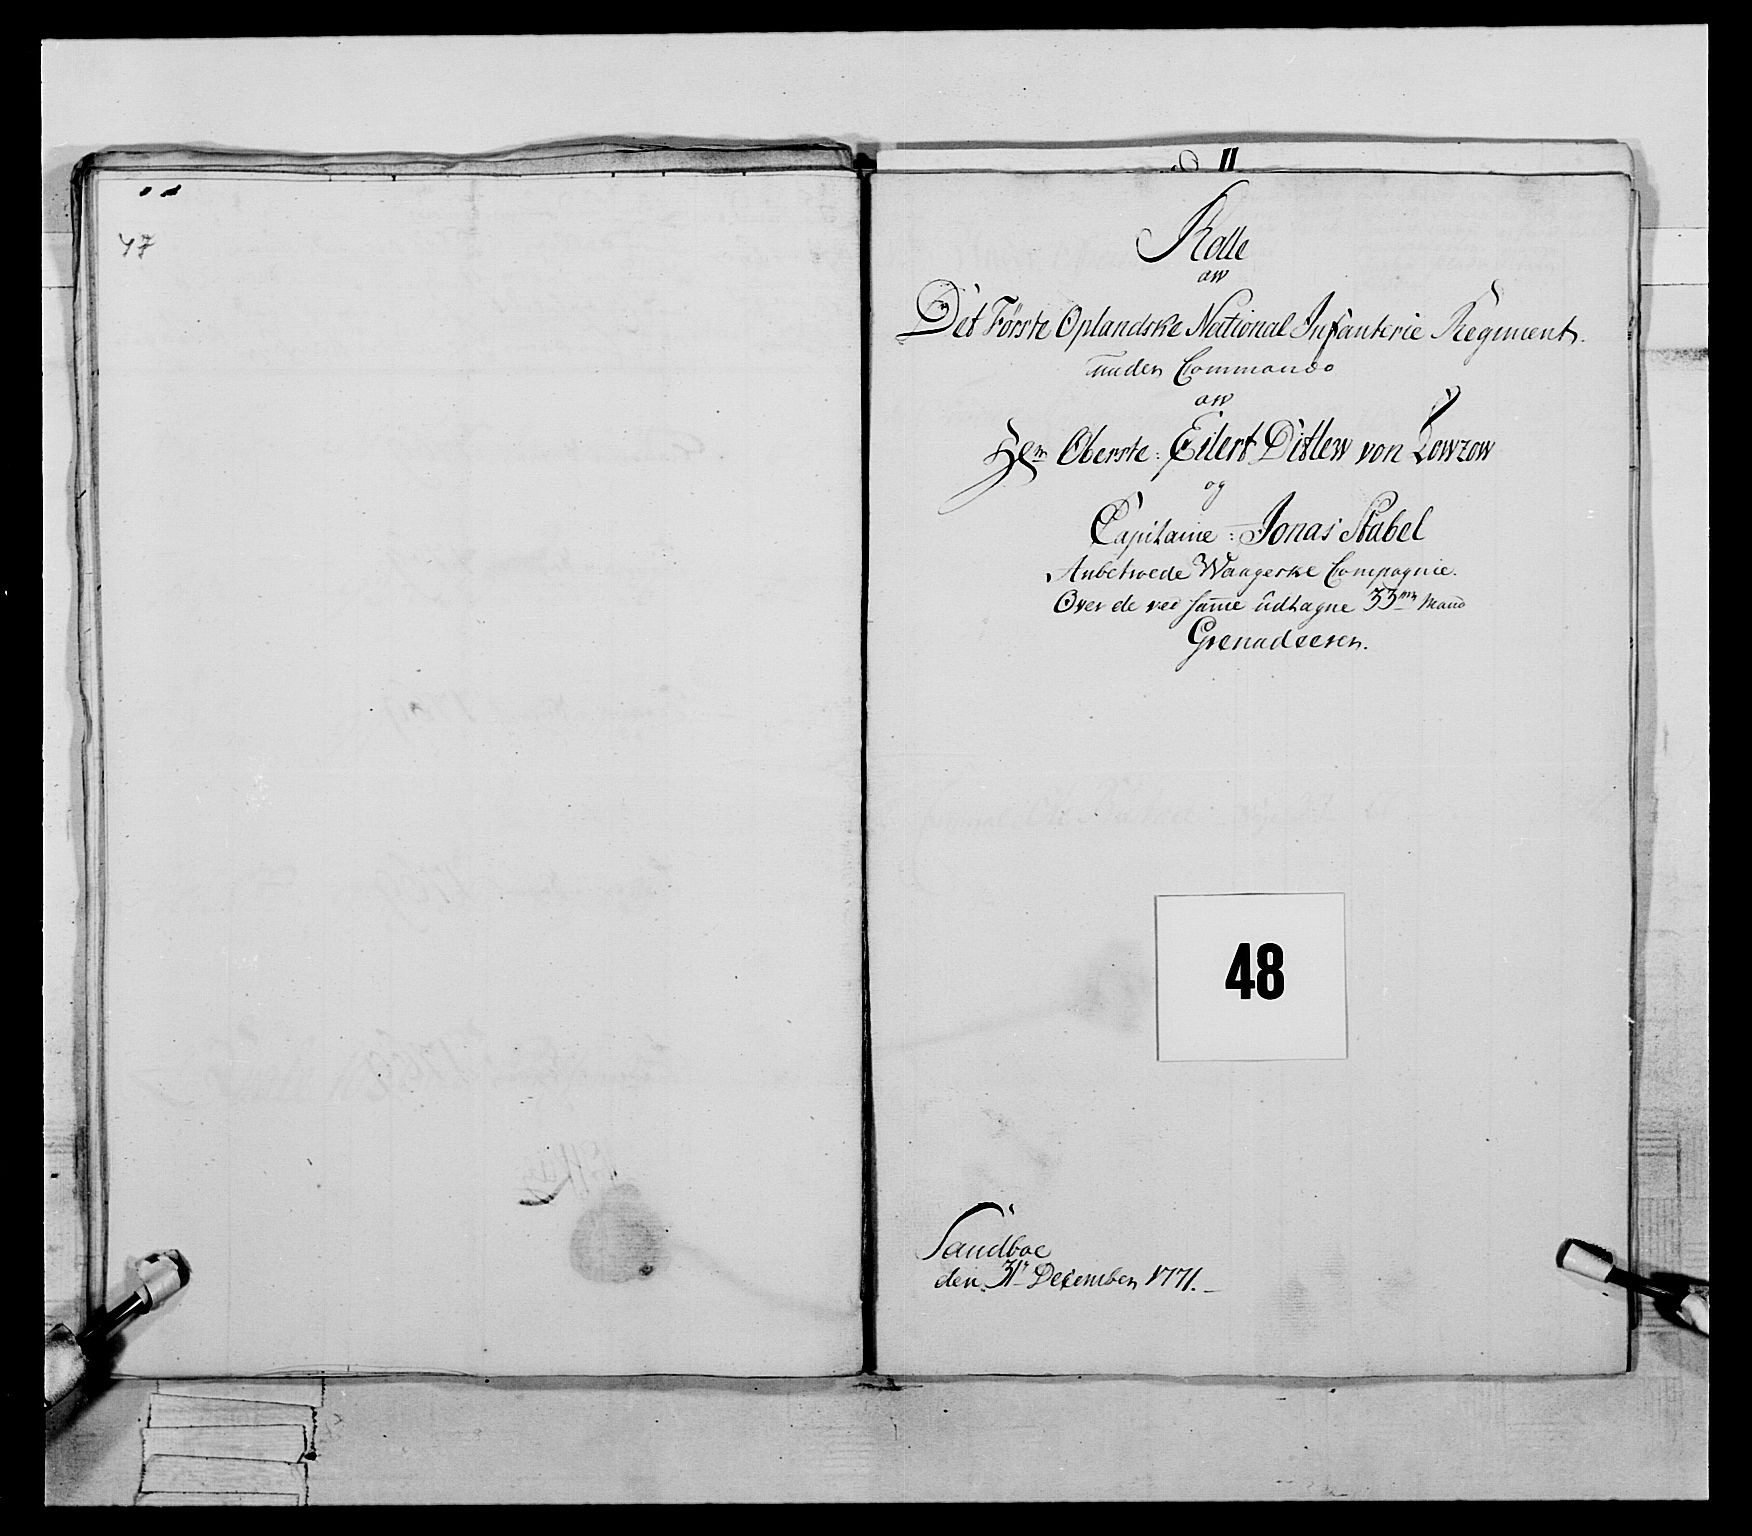 47
II
Rolle
aw
Det Förste Oplandske National Infanterie Regiment.
under Commando
aw
Hrr Oberste: Eilert Ditlew von Lowzow
og
Capitaine: Jonas Stabel
Anbetroede Waagerske Compagnie.
Over de ved samme udtagne 33 Mand
Grenadeerer.
48
Sandboe
den 31te December 1771.